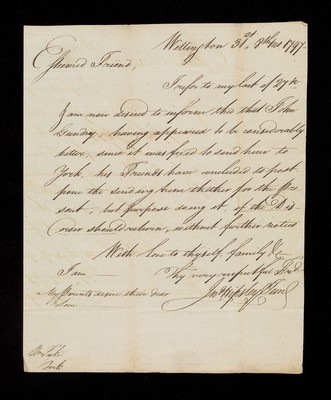 Wellington 31st 8th Mo 1797.
Esteemed Friend,
I refer to my last of 27th
I am now desired to inform thee that John
Gundry, having appeared to be considerably
better, since it was fixed to send him to
York, his Friends have concluded to post
pone the sending him thither for the Pre
sent, but purpose doing it, if the Dis
order should return, without further notice
With love to thyself, family &c
I am Thy very respectful Frd.
My Parents desire their dear
Love
Wm Tuke
York